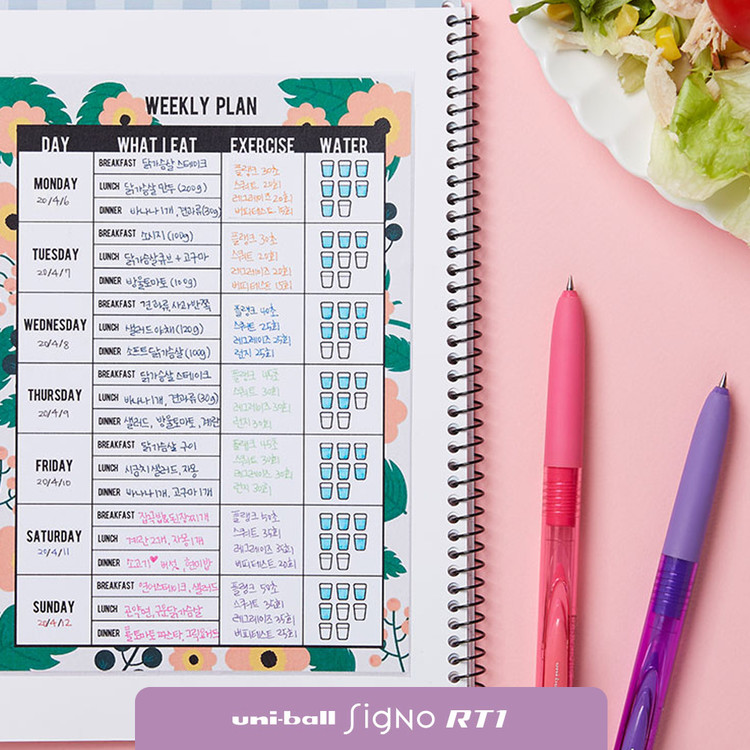 WEEKLY PLAN
DAY WHAT I EAT EXERCISE WATER
MONDAY
20/4/6
BREAKFAST 닭가슴살 스테이크
LUNCH 닭가슴살 만두 (200g)
DINNER 바나나 1개, 견과류(30g)
플랭크 30초
스쿼트 25회
레그레이즈 20회
버피테스트 15회
TUESDAY
20/4/7
BREAKFAST 소시지 (100g)
LUNCH 닭가슴살큐브 + 고구마
DINNER 방울토마토 (100g)
플랭크 30초
스쿼트 20회
레그레이즈 20회
버피테스트 15회
WEDNESDAY
20/4/8
BREAKFAST 견과류, 사과반쪽
LUNCH 샐러드 야채 (120g)
DINNER 소프트 닭가슴살 (100g)
플랭크 40초
스쿼트 25회
레그레이즈 25회
런지 25회
THURSDAY
20/4/9
BREAKFAST 닭가슴살 스테이크
LUNCH 바나나 1개, 견과류 (30g)
DINNER 샐러드, 방울토마토, 계란
플랭크 45초
스쿼트 30회
레그레이즈 30회
런지 30회
FRIDAY
20/4/10
BREAKFAST 닭가슴살 구이
LUNCH 시금치 샐러드, 자몽
DINNER 바나나 1개, 고구마 1개
플랭크 45초
스쿼트 30회
레그레이즈 30회
런지 30회
SATURDAY
20/4/11
BREAKFAST 잡곡밥&된장찌개
LUNCH 계란 2개, 자몽 1개
DINNER 소고기♥ 버섯, 현미밥
플랭크 50초
스쿼트 35회
레그레이즈 35회
버피테스트 20회
SUNDAY
20/4/12
BREAKFAST 연어스테이크, 샐러드
LUNCH 곤약면, 구운닭가슴살
DINNER 토마토 파스타,
플랭크 50초
스쿼트 35회
레그레이즈 35회
버피테스트 25회
uni-ball SigNO RT1